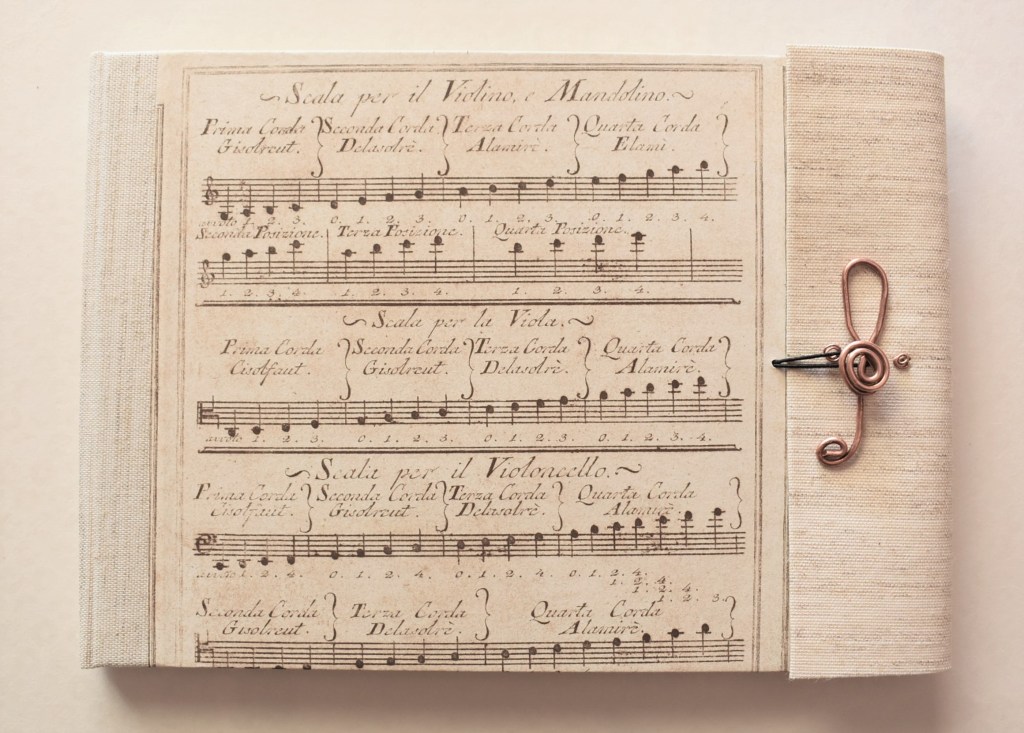 Scala per il Violino, e Mandolino.
Prima Corda Seconda Corda Terza Corda Quarta Corda
Gisolreut. Delasolrè. Alamirè. Elamì.
1. 2. 3. 0. 1. 2. 3. 0. 1. 2. 3. 0. 1. 2. 3. 4.
Seconda Posizione. Terza Posizione. Quarta Posizione.
1. 2. 3. 4. 1. 2. 3. 4. 1. 2. 3. 4.
Scala per la Viola.
Prima Corda Seconda Corda Terza Corda Quarta Corda
Cisolfaut. Gisolreut. Delasolrè. Alamirè.
1. 2. 3. 0. 1. 2. 3. 0. 1. 2. 3. 0. 1. 2. 3. 4.
Scala per il Violoncello.
Prima Corda Seconda Corda Terza Corda Quarta Corda
Cisolfaut. Gisolreut. Delasolrè. Alamirè.
1. 2. 4. 0. 1. 2. 4. 0. 1. 2. 4. 0. 1. 2. 4.
1. 2. 4.
1. 2. 3.
Seconda Corda Terza Corda Quarta Corda
Gisolreut. Delasolrè. Alamirè.